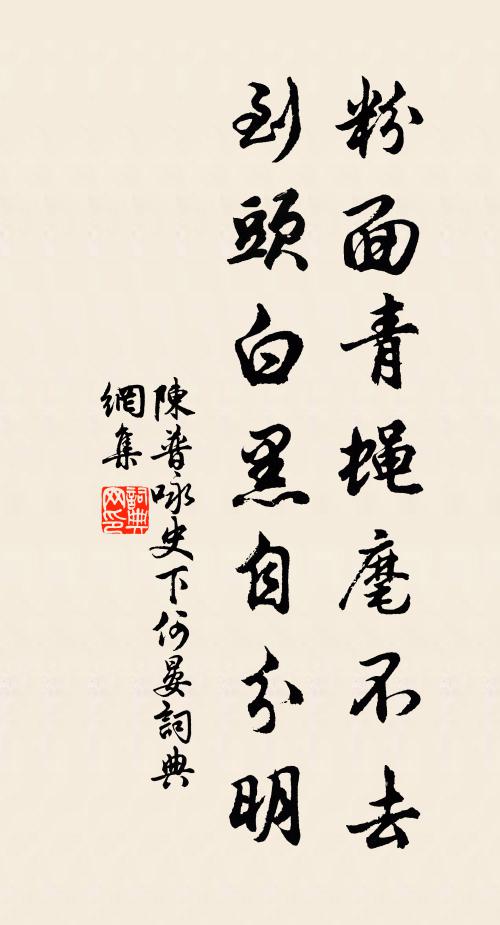 粉面青蝇麾不去
到頭白黑自分明
陳普咏史下何晏詞典
網集
詞典網印